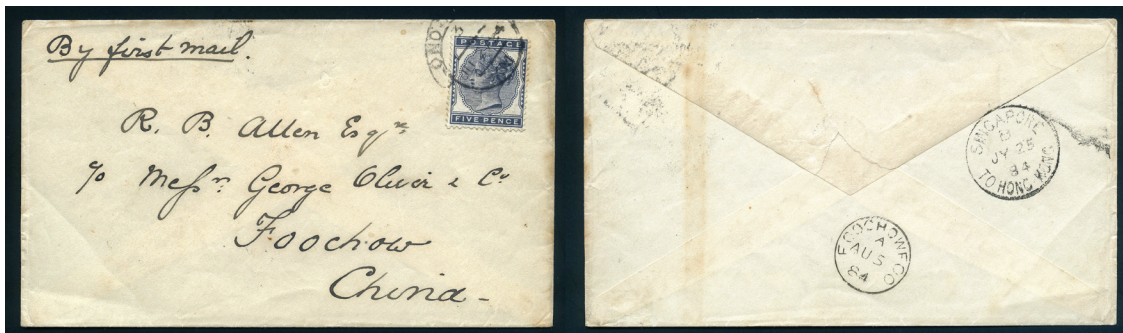 By first mail.
POSTAGE
FIVE PENCE
R. B. Allen Esqre
c/o Messrs George Oliver & Co
Foochow
China
SINGAPORE
JY 25
84
TO HONG KONG
FOOCHOWFOO
A
AU 5
84